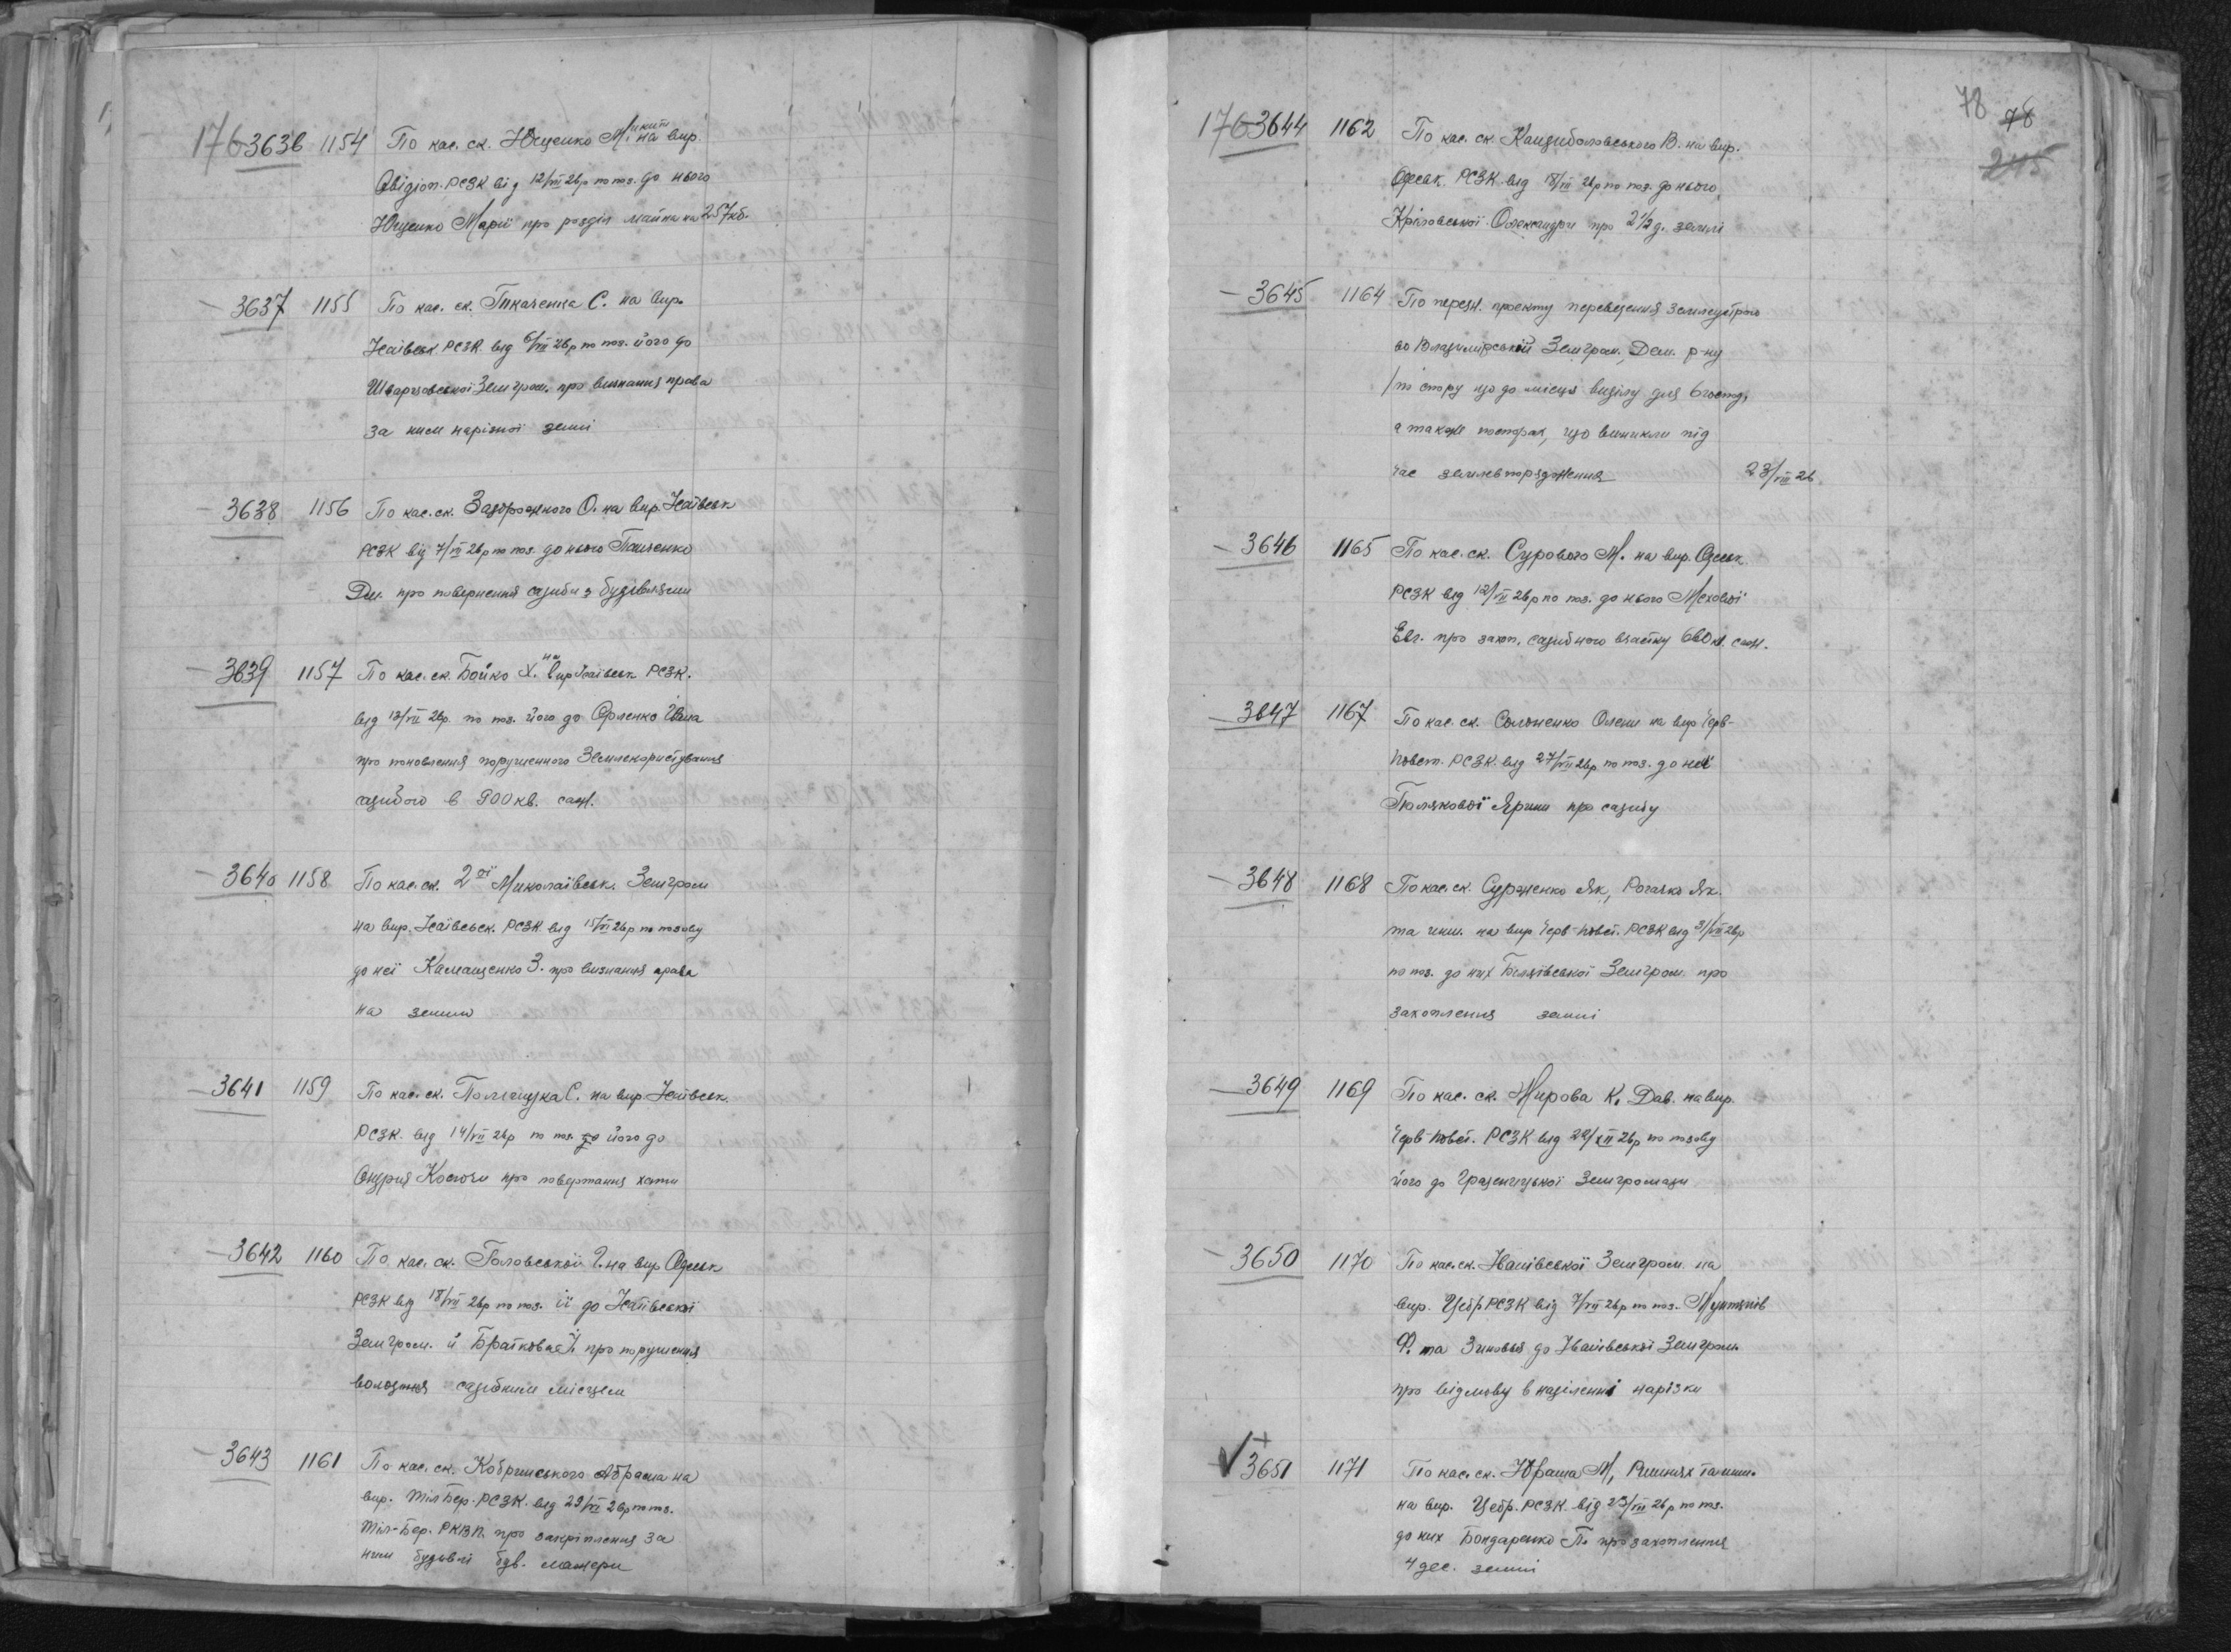 176 3636 1154 По кас. ск. Ющенко Микит на вир.
Овідіоп. РСЗК від 12/VII 26р по поз. до нього
Ющенко Марії про розділ майна на 257кб.
3637 1155 По кас. ск. Ткаченка С. на вир.
Исаївськ РСЗК. від 6/VII 26р по поз. його до
Шварцовської Земгром. про визнання права
за ним нарізної землі
3638 1156 По кас. ск. Задорожного О. на вир. Исаївськ
РСЗК від 7/VII 26р по поз. до нього
Дм. про повернення садиби з будівлями
3639 1157 По кас. ск. Бойко Х. на вир Исаївськ РСЗК.
від 13/VII 26р. по поз. його до Орленко Івана
про поновлення порушенного Землекористування
садибою в 900 кв. саж.
3640 1158 По кас. ск. 2ої Миколаївськ. Земгром
на вир. Исаївськ. РСЗК від 15/VI 26р по позову
до неї Камащенко З. про визнання права
на землю
3641 1159 По кас. ск. Полящука С. на вир. Исаївськ.
РСЗК. від 14/VII 26р по поз. його до
Андрія про повертання хати
3642 1160 По кас. ск. Головської Г. на вир Одеськ
РСЗК від 18/VII 26р по поз. її до Исаївської
Земгром. й про порушення
володіння садибним місцем
3643 1161 По кас. ск. Кобринського Абрама на
вир. Тіл Бер. РСЗК. від 29/VI 26р по поз.
Тіл-Бер. РКВП. про закріплення за
ним будівлі був. мажери
78 78
245
176 3644 1162 По кас. ск. Кандибаловського В. на вир.
Одеськ. РСЗК від 18/VII 26р по поз. до нього
Кріловської Олександри про 2 1/2 д. землі
3645 1164 По перезн. проекту переведення землеустрою
во Владимірській Земгром., Дем. р-ну
/по спору що до місця виділу для 6 господ.
а також по спорах, що виникли під
час землевпорядження 23/VIII 26
3646 1165 По кас. ск. Сурового М. на вир. Одеськ.
РСЗК від 12/VII 26р по поз. до нього Мехової
Евг. про захоп. садибного вчастку 660 кв. саж.
3647 1167 По кас. ск. Солоненко Олени на вир Черв-
повст. РСЗК. від 27/VII 26р по поз. до неї
Полякової Ярини про садибу
3648 1168 По кас. ск. Сурженко Як, Рогачко Як.
та инш. на вир Черв-повст. РСЗК від 31/VII 26р
по поз. до них Біляївської Земгром. про
захоплення землі
3649 1169 По кас. ск. Жирова К. Дав. на вир.
Черв-повст. РСЗК від 22/XII 26р по позову
його до Граденицької Земгромади
3650 1170 По кас. ск. Иванівської Земгром. на
вир. Цебр РСЗК від 7/VII 26р по поз.
Ф. та Зиновія до Иванівської Земгром.
про відмову в наділенні нарізки
3651 1171 По кас. ск. Юраша М, та инш.
на вир. Цебр. РСЗК. від 23/VII 26р по поз.
до них Бондаренко П. про захоплення
4 дес. землі